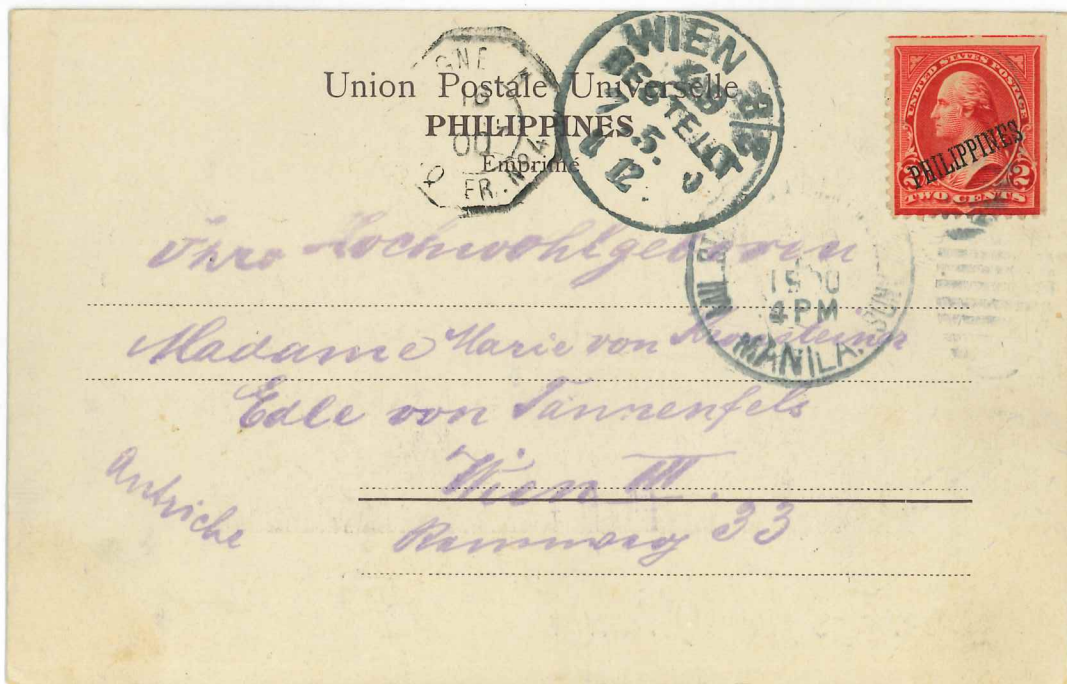 Union Postale Universelle
PHILIPPINES
Emprimé
LIGNE
00
PAQ. FR. No 4
WIEN 3/2
BESTELLT
7. 5. 0
12
UNITED STATES POSTAGE
PHILIPPINES
2 2
TWO CENTS
1900
4 PM
MANILA
Ihro Hochwohlgeboren
Madame Marie von
Edle von Tannenfels
Wien III.
Autriche
Rennweg 33